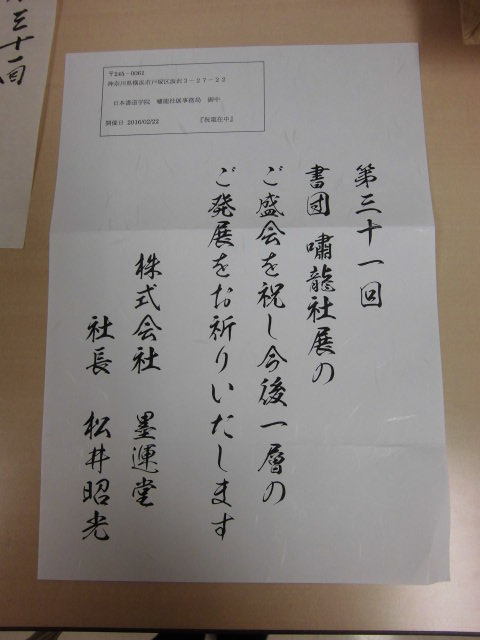 〒245-0061
神奈川県横浜市戸塚区汲沢3-27-22
日本書道学院 嘯龍社展事務局 御中
開催日 2016/02/22 『祝電在中』
第三十一回
書団 嘯龍社展の
ご盛会を祝し今後一層の
ご発展をお祈りいたします
株式会社 墨運堂
社長 松井昭光
三十一回